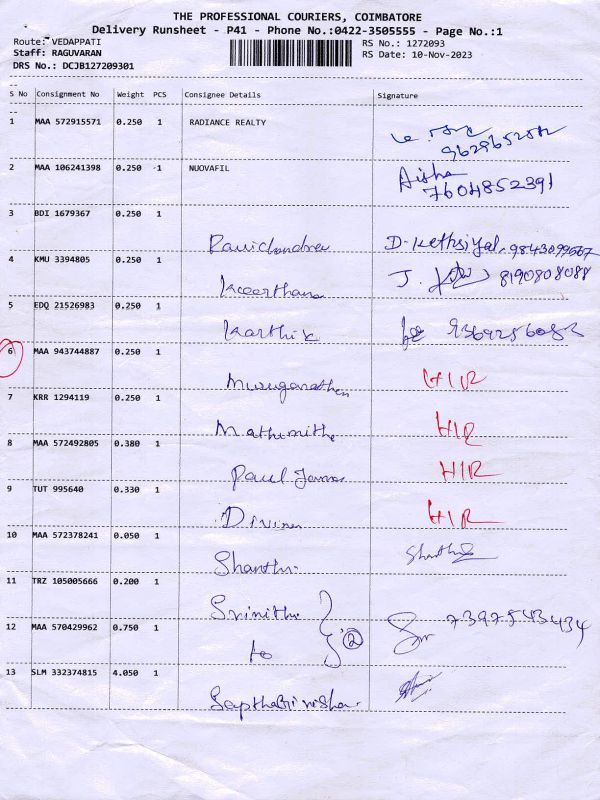 THE PROFESSIONAL COURIERS, COIMBATORE
Delivery Runsheet - P41 - Phone No.:0422-3505555 - Page No.:1
Route: VEDAPPATI RS No.: 1272093
Staff: RAGUVARAN RS Date: 10-Nov-2023
DRS No.: DCJB127209301
S No Consignment No Weight PCS Consignee Details Signature
1 MAA 572915571 0.250 1 RADIANCE REALTY
9629652512
2 MAA 106241398 0.250 1 NUOVAFIL Aisha
7604852391
3 BDI 1679367 0.250 1
Ravichandran D. Kethsiyal. 9843099567
4 KMU 3394805 0.250 1
Keerthana J. 8190808088
5 EDQ 21526983 0.250 1
Karthik 9369256083
6 MAA 943744887 0.250 1
Murugarathen HIR
7 KRR 1294119 0.250 1
Mathimitha HIR
8 MAA 572492805 0.380 1
Paul James HIR
9 TUT 995640 0.330 1
Divine HIR
10 MAA 572378241 0.050 1
Shanthi Shanthi
11 TRZ 105005666 0.200 1
Srinithi 2 7397543434
12 MAA 570429962 0.750 1
to
13 SLM 332374815 4.050 1